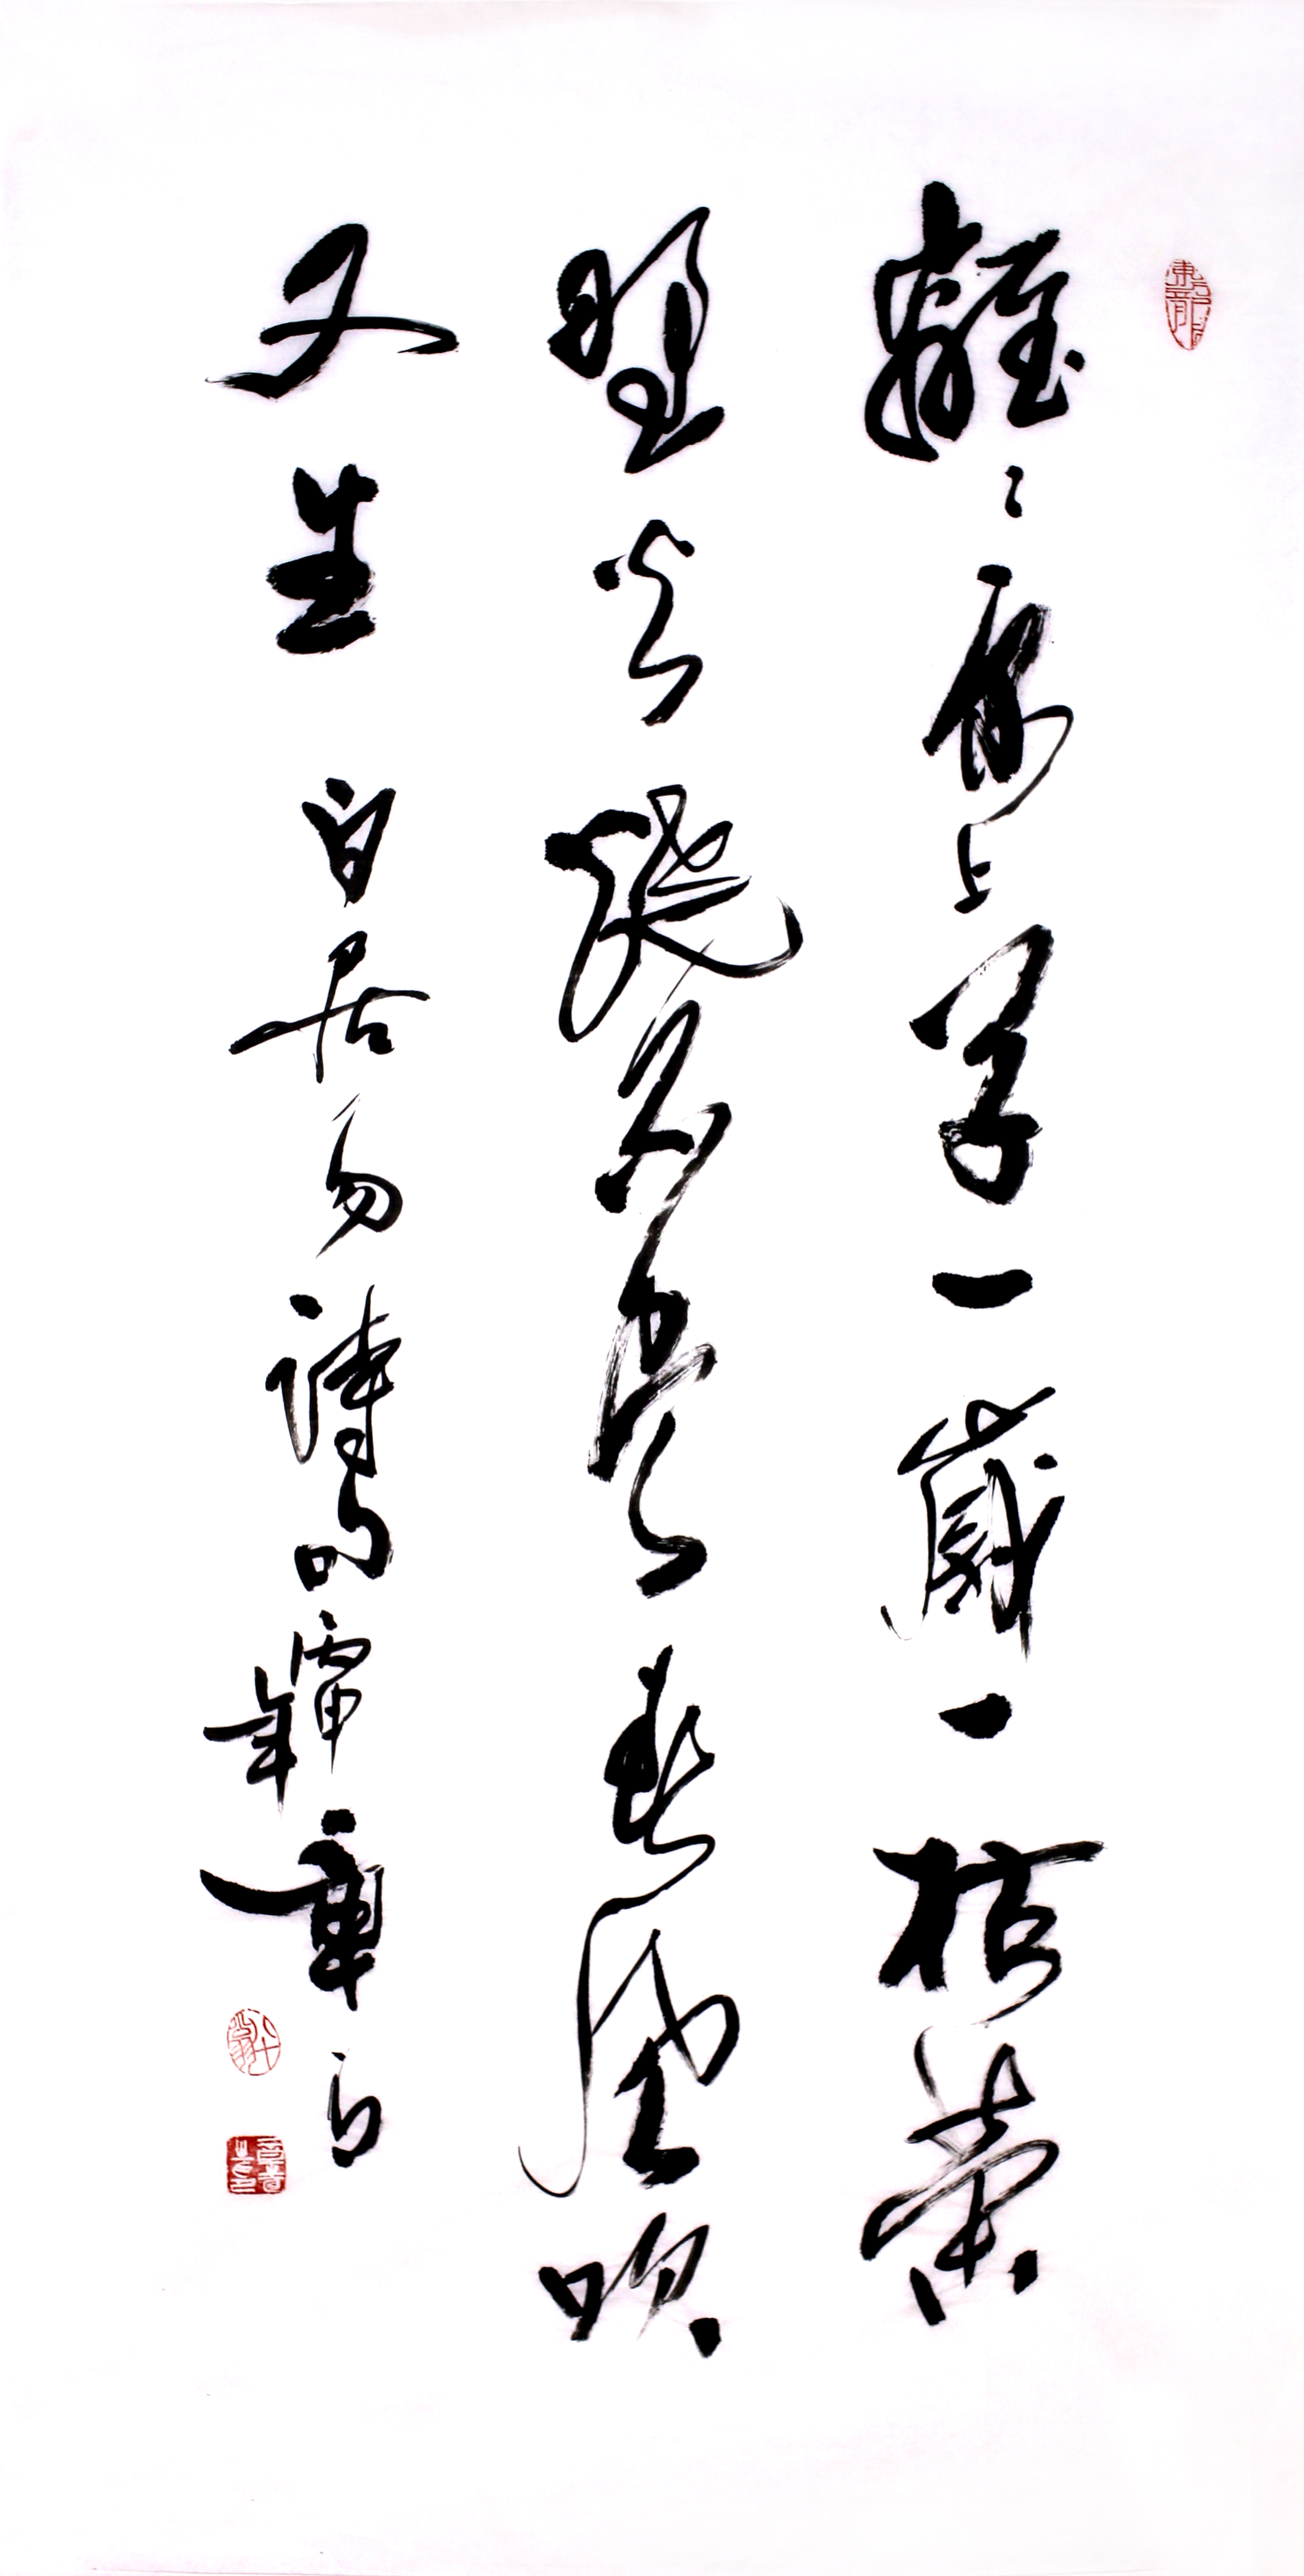 離々原上草一歲一枯榮
野火燒不盡春風吹
又生 白居易詩句 丙申年